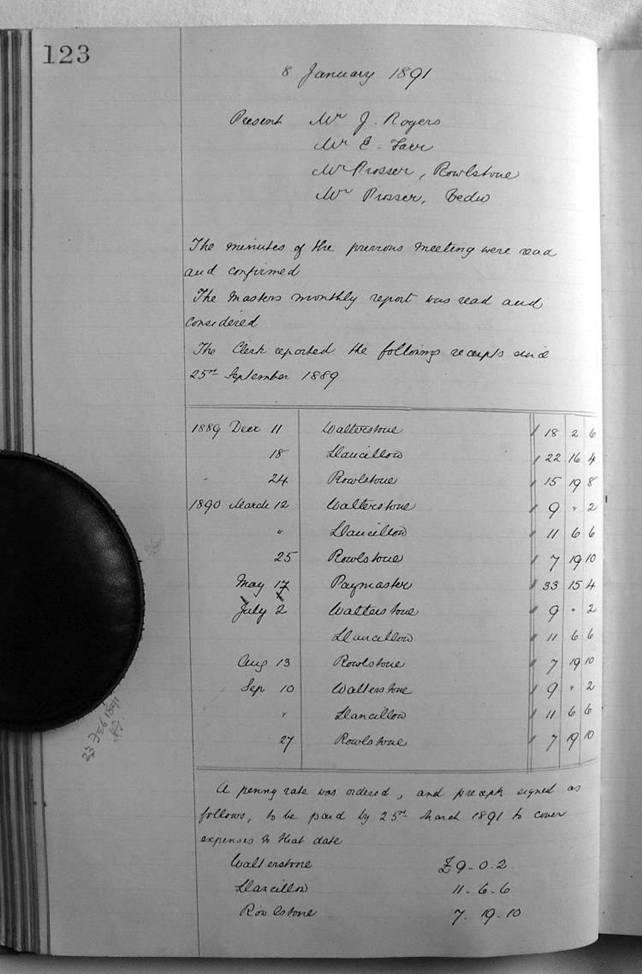 123
8 January 1891
Present Mr J. Rogers
Mr E. Farr
Mr Prosser, Rowlstone
Mr Prosser, Bedw
The minutes of the previous meeting were read
and confirmed
The Masters monthly report was read and
considered
The Clerk reported the following receipts since
25th September 1889
1889 Decr 11 Walterstone 18 2 6
18 Llancillow 22 16 4
" 24 Rowlstone 15 19 8
1890 March 12 Walterstone 9 " 2
" Llancillow 11 6 6
25 Rowlstone 7 19 10
May 17 Paymaster 33 15 4
July 2 Walterstone 9 " 2
Llancillow 11 6 6
Aug 13 Rowlstone 7 19 10
Sep 10 Walterstone 9 " 2
" Llancillow 11 6 6
27 Rowlstone 7 19 10
A penny rate was ordered, and precepts signed as
follows, to be paid by 25th March 1891 to cover
expenses to that date
Walterstone £9-0-2
Llancillow 11-6-6
Rowlstone 7-19-10
23 Feb 1891